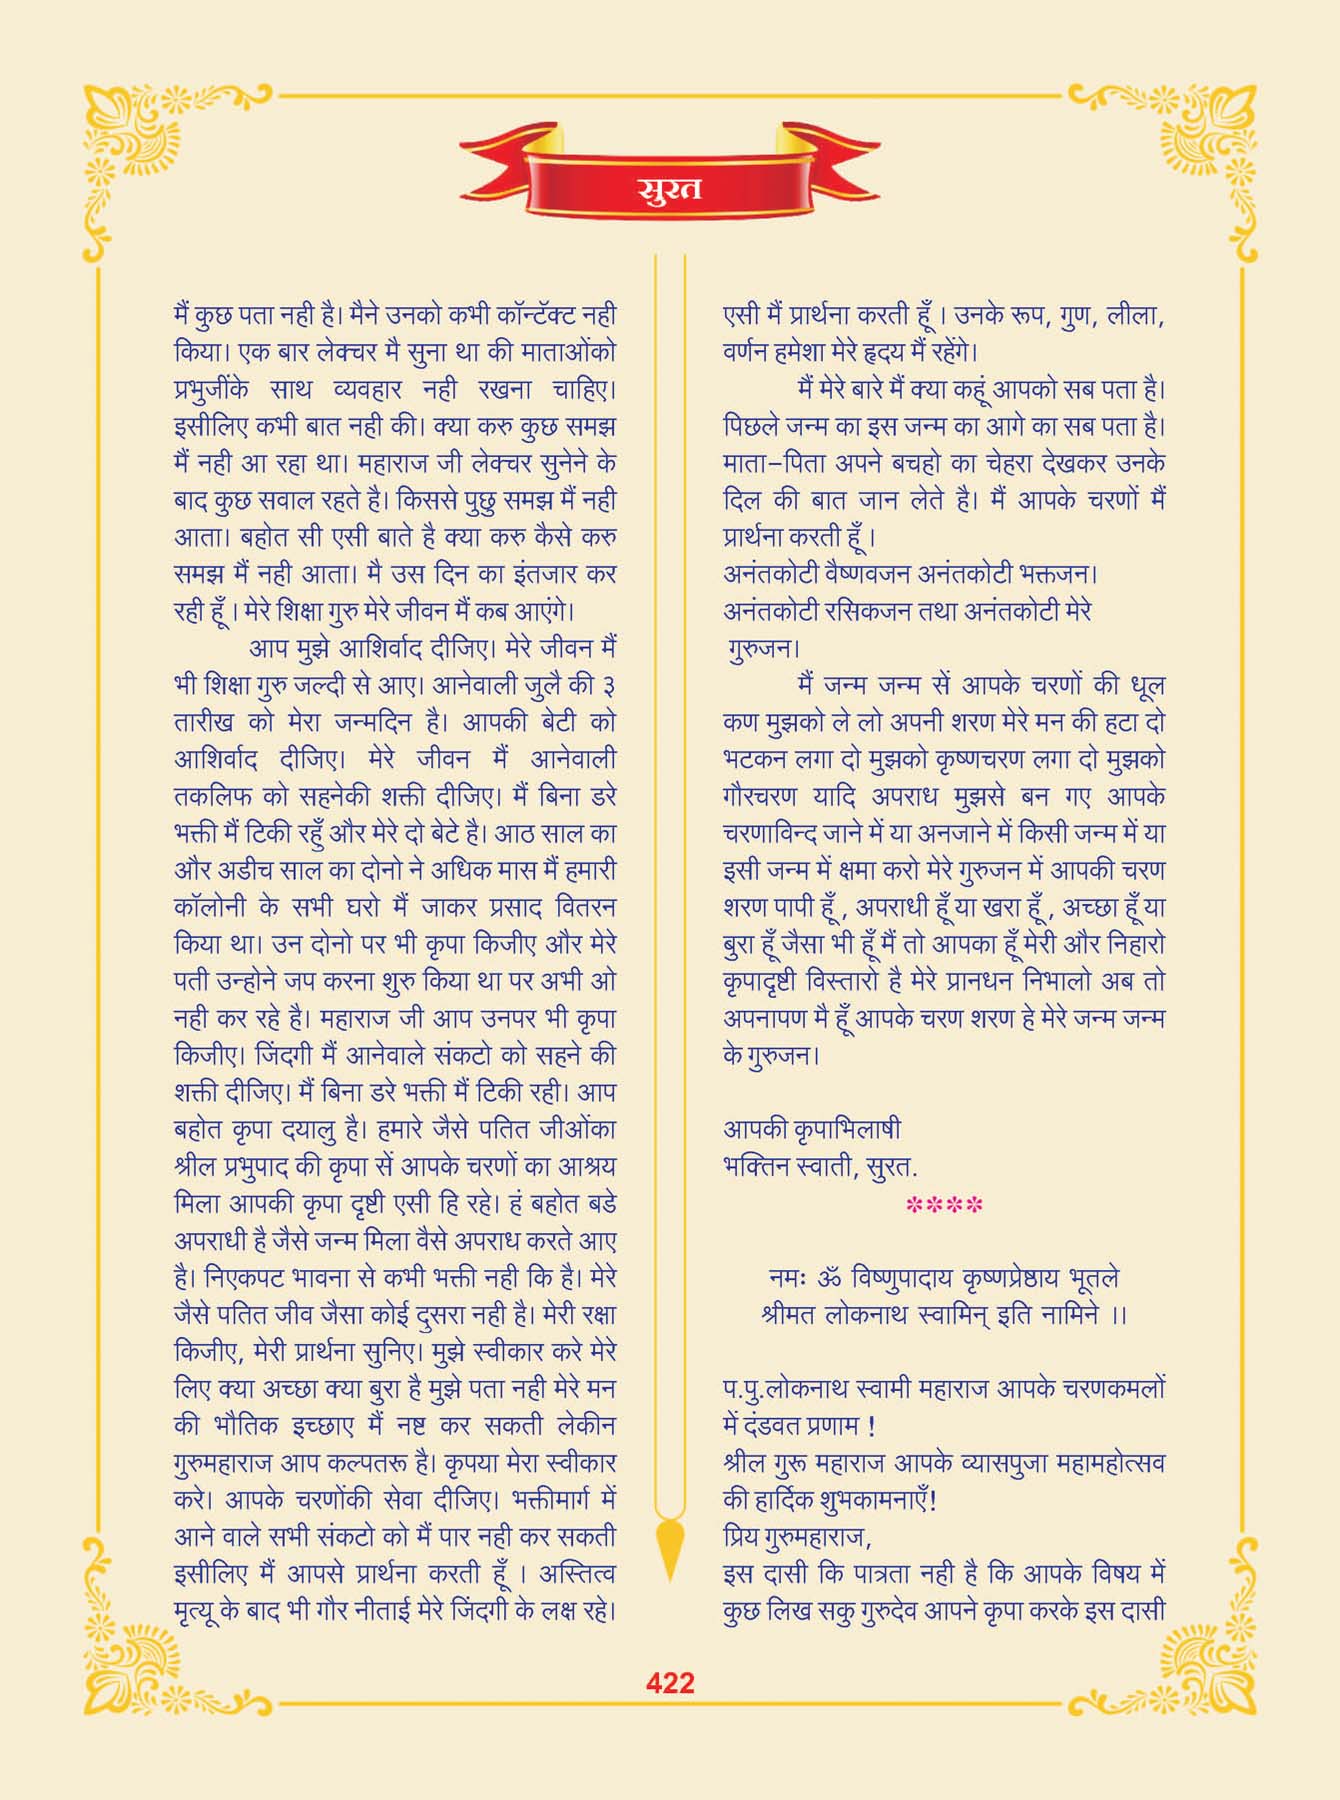 सुरत
मैं कुछ पता नही है। मैने उनको कभी कॉन्टॅक्ट नही
किया। एक बार लेक्चर मै सुना था की माताओंको
प्रभुजींके साथ व्यवहार नही रखना चाहिए।
इसीलिए कभी बात नही की। क्या करु कुछ समझ
मैं नही आ रहा था। महाराज जी लेक्चर सुनेने के
बाद कुछ सवाल रहते है। किससे पुछु समझ मैं नही
आता। बहोत सी एसी बाते है क्या करु कैसे करु
समझ मैं नही आता। मै उस दिन का इंतजार कर
रही हूँ । मेरे शिक्षा गुरु मेरे जीवन मैं कब आएंगे।
आप मुझे आशिर्वाद दीजिए। मेरे जीवन मैं
भी शिक्षा गुरु जल्दी से आए। आनेवाली जुलै की ३
तारीख को मेरा जन्मदिन है। आपकी बेटी को
आशिर्वाद दीजिए। मेरे जीवन मैं आनेवाली
तकलिफ को सहनेकी शक्ती दीजिए। मैं बिना डरे
भक्ती मैं टिकी रहुँ और मेरे दो बेटे है। आठ साल का
और अडीच साल का दोनो ने अधिक मास मैं हमारी
कॉलोनी के सभी घरो मैं जाकर प्रसाद वितरन
किया था। उन दोनो पर भी कृपा किजीए और मेरे
पती उन्होने जप करना शुरु किया था पर अभी ओ
नही कर रहे है। महाराज जी आप उनपर भी कृपा
किजीए। जिंदगी मैं आनेवाले संकटो को सहने की
शक्ती दीजिए। मैं बिना डरे भक्ती मैं टिकी रही। आप
बहोत कृपा दयालु है। हमारे जैसे पतित जीओंका
श्रील प्रभुपाद की कृपा सें आपके चरणों का आश्रय
मिला आपकी कृपा दृष्टी एसी हि रहे। हं बहोत बडे
अपराधी है जैसे जन्म मिला वैसे अपराध करते आए
है। निएकपट भावना से कभी भक्ती नही कि है। मेरे
जैसे पतित जीव जैसा कोई दुसरा नही है। मेरी रक्षा
किजीए, मेरी प्रार्थना सुनिए। मुझे स्वीकार करे मेरे
लिए क्या अच्छा क्या बुरा है मुझे पता नही मेरे मन
की भौतिक इच्छाए मैं नष्ट कर सकती लेकीन
गुरुमहाराज आप कल्पतरू है। कृपया मेरा स्वीकार
करे। आपके चरणोंकी सेवा दीजिए। भक्तीमार्ग में
आने वाले सभी संकटो को मैं पार नही कर सकती
इसीलिए मैं आपसे प्रार्थना करती हूँ । अस्तित्व
मृत्यू के बाद भी गौर नीताई मेरे जिंदगी के लक्ष रहे।
एसी मैं प्रार्थना करती हूँ । उनके रूप, गुण, लीला,
वर्णन हमेशा मेरे हृदय मैं रहेंगे।
मैं मेरे बारे मैं क्या कहूं आपको सब पता है।
पिछले जन्म का इस जन्म का आगे का सब पता है।
माता-पिता अपने बचहो का चेहरा देखकर उनके
दिल की बात जान लेते है। मैं आपके चरणों मैं
प्रार्थना करती हूँ ।
अनंतकोटी वैष्णवजन अनंतकोटी भक्तजन।
अनंतकोटी रसिकजन तथा अनंतकोटी मेरे
गुरुजन।
मैं जन्म जन्म सें आपके चरणों की धूल
कण मुझको ले लो अपनी शरण मेरे मन की हटा दो
भटकन लगा दो मुझको कृष्णचरण लगा दो मुझको
गौरचरण यादि अपराध मुझसे बन गए आपके
चरणाविन्द जाने में या अनजाने में किसी जन्म में या
इसी जन्म में क्षमा करो मेरे गुरुजन में आपकी चरण
शरण पापी हूँ , अपराधी हूँ या खरा हूँ , अच्छा हूँ या
बुरा हूँ जैसा भी हूँ मैं तो आपका हूँ मेरी और निहारो
कृपादृष्टी विस्तारो है मेरे प्रानधन निभालो अब तो
अपनापण मै हूँ आपके चरण शरण हे मेरे जन्म जन्म
के गुरुजन।
आपकी कृपाभिलाषी
भक्तिन स्वाती, सुरत.
****
नमः ॐ विष्णुपादाय कृष्णप्रेष्ठाय भूतले
श्रीमत लोकनाथ स्वामिन् इति नामिने ।।
प.पु.लोकनाथ स्वामी महाराज आपके चरणकमलों
में दंडवत प्रणाम !
श्रील गुरू महाराज आपके व्यासपुजा महामहोत्सव
की हार्दिक शुभकामनाएँ!
प्रिय गुरुमहाराज,
इस दासी कि पात्रता नही है कि आपके विषय में
कुछ लिख सकु गुरुदेव आपने कृपा करके इस दासी
422